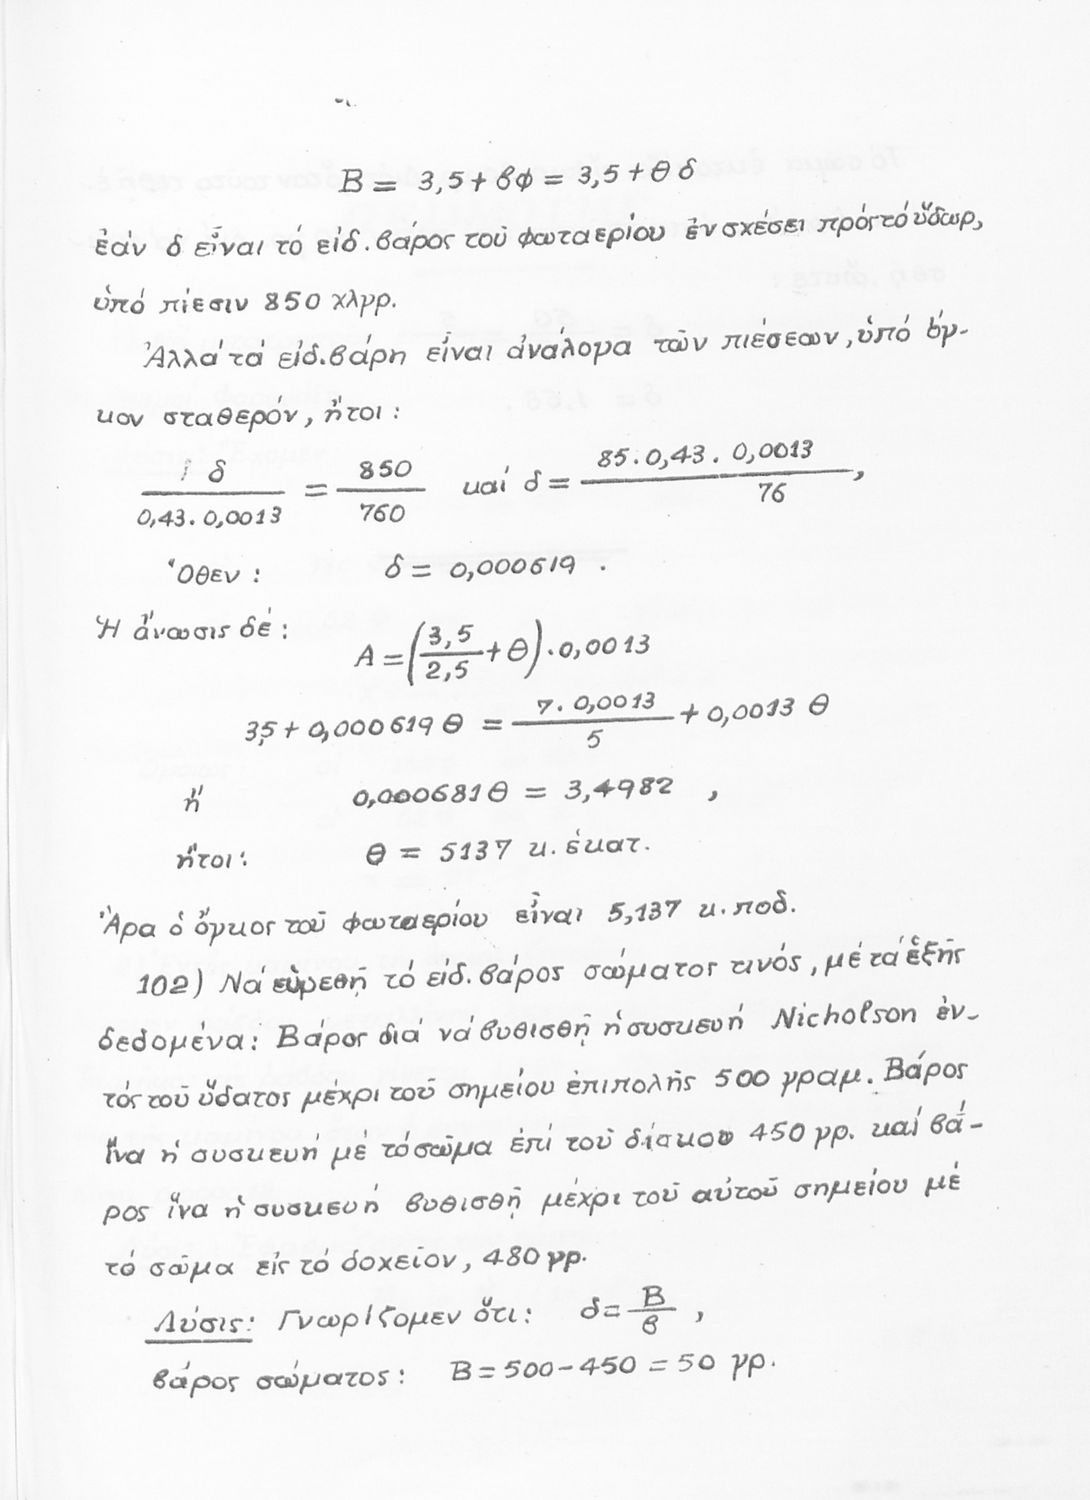 Β = 3,5 + βφ = 3,5 + θ δ
ἐάν δ εἶναι τό εἰδ. βάρος τοῦ φωταερίου ἐν σχέσει πρός τό ὕδωρ,
ὑπό πίεσιν 850 χλγρ.
Ἀλλά τά εἰδ. βάρη εἶναι ἀνάλογα τῶν πιέσεων, ὑπό ὄγ-
κον σταθερόν, ἤτοι:
δ / 0,43 . 0,0013 = 850 / 760 καί δ = 85 . 0,43 . 0,0013 / 76 ,
Ὅθεν: δ = 0,000619 .
Ἡ ἄνωσις δέ:
Α = (3,5 / 2,5 + θ) . 0,0013
3,5 + 0,000619 θ = 7 . 0,0013 / 5 + 0,0013 θ
ἤ 0,000681 θ = 3,4982 ,
ἤτοι: θ = 5137 κ. ἑκατ.
Ἄρα ὁ ὄγκος τοῦ φωταερίου εἶναι 5,137 κ. ποδ.
102) Νά εὑρεθῇ τό εἰδ. βάρος σώματος τινός, μέ τά ἑξῆς
δεδομένα: Βάρος διά νά βυθισθῇ ἡ συσκευή Nicholson ἐν-
τός τοῦ ὕδατος μέχρι τοῦ σημείου ἐπιπολῆς 500 γραμ. Βάρος
ἵνα ἡ συσκευή μέ τό σῶμα ἐπί τοῦ δίσκου 450 γρ. καί βά-
ρος ἵνα ἡ συσκευή βυθισθῇ μέχρι τοῦ αὐτοῦ σημείου μέ
τό σῶμα εἰς τό δοχεῖον, 480 γρ.
Λύσις: Γνωρίζομεν ὅτι: δ = Β / β ,
βάρος σώματος: Β = 500 - 450 = 50 γρ.